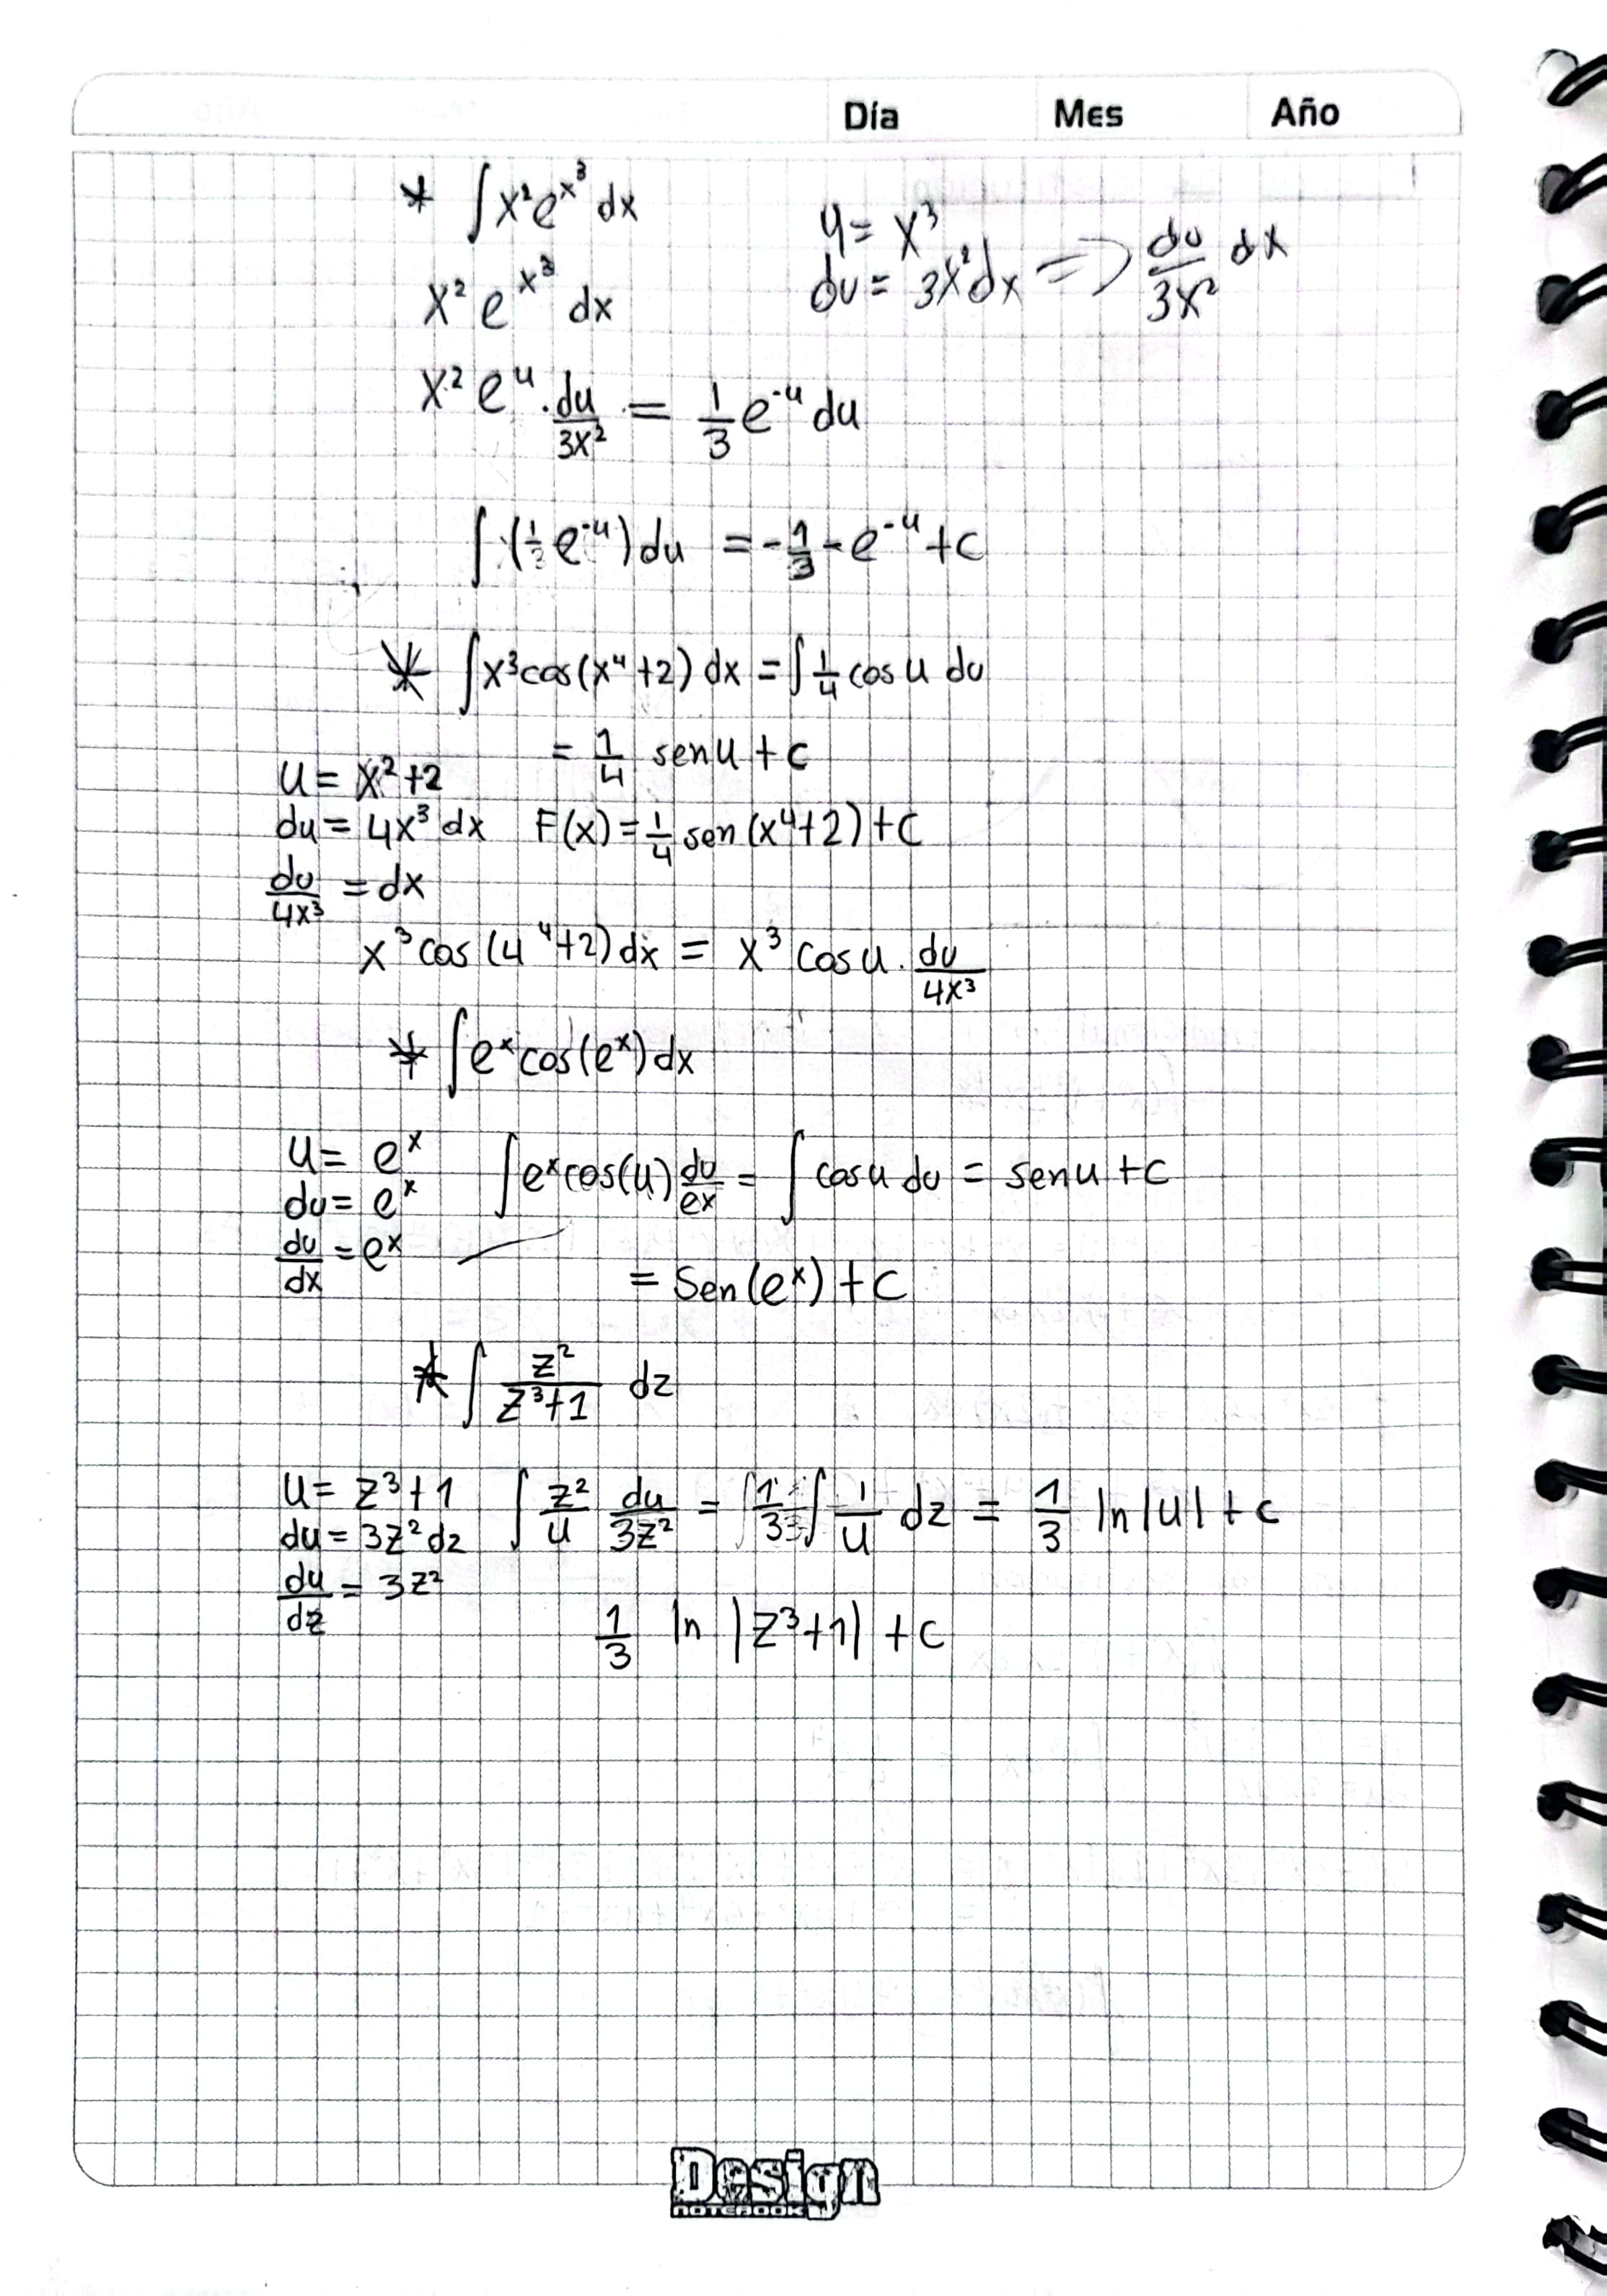 Día Mes Año
* ∫x²e^x³ dx
u = x³
x² e^x³ dx
du = 3x²dx => du/3x² dx
x² e^u · du/3x² = 1/3 e^-u du
∫(1/3 e^-u) du = -1/3 - e^-u + c
* ∫x³cos(x⁴+2) dx = ∫1/4 cos u du
= 1/4 sen u + c
u = x²+2
du = 4x³ dx F(x) = 1/4 sen (x⁴+2) + C
du/4x³ = dx
x³ cos (4⁴+2) dx = x³ cos u · du/4x³
* ∫e^x cos(e^x) dx
u = e^x ∫e^x cos(u) du/ex = ∫ cos u du = sen u + c
du = e^x
du/dx = e^x
= Sen(e^x) + C
* ∫ z²/z³+1 dz
u = z³+1 ∫ z²/u du/3z² = 1/3 ∫ 1/u dz = 1/3 ln|u| + c
du = 3z² dz
du/dz = 3z²
1/3 ln |z³+1| + c
Design
NOTEBOOK